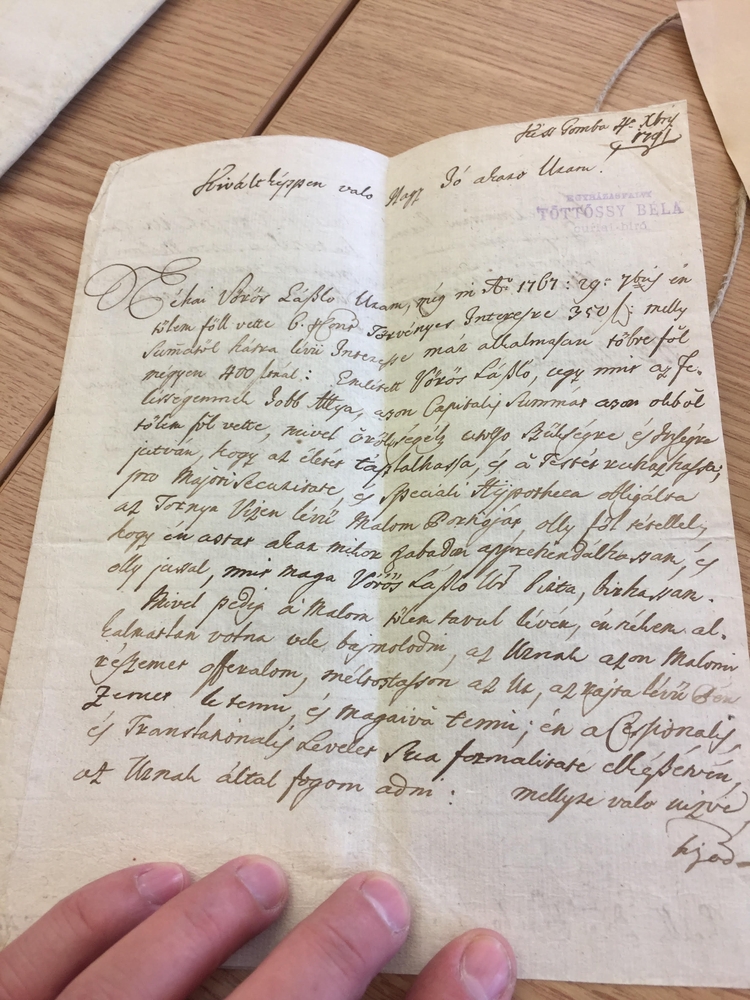 Gomba 4ª Xbris
1791
Kiváltképpen valo Nagy Jó akaro Uram.
EGYHÁZASFALVY
TÖTTÖSSY BÉLA
Nékai Vörös Láßló Uram, még in Aº 1767: 29: 7bris én
tölem föll vette 6. Törvényes Interesre 350 f: melly
Summátol hátra lévü Interesse már alkalmasan többre föl
mégyen 400 knál: Emlitett Vörös Láßló, ugy mint az Fe-
lességemnek Jobb Attya, azon Capitalis Summat azon okbol
tölem föl vette, mivel örökségés utolso Szükségre és
jutván, hogy az életét táplálhassa, és a Testét ruházhassa;
pro Majori Securitate, és Speciali Hypotheca obligálta
az Tornya Vizen lévü Malom Portioját, olly föl tétellel,
hogy én aztat akar mikor szabadon apprehendálhassam, és
olly jussal, mint maga Vörös Láßló Ur birta, birhassam.
Mivel pedig a Malom tölem távul lévén, énnékem al-
kalmatlan volna vele bajmolodni, az Urnak azon Malom
részemet offeralom, méltoztasson az Ur, az rajta lévü
zemet le tenni, és magaivá tenni; én a Cessionalis,
és Translationalis Levelet Sua formalitate elkészétvén,
az Urnak által fogom adni: mellyre valo nézve